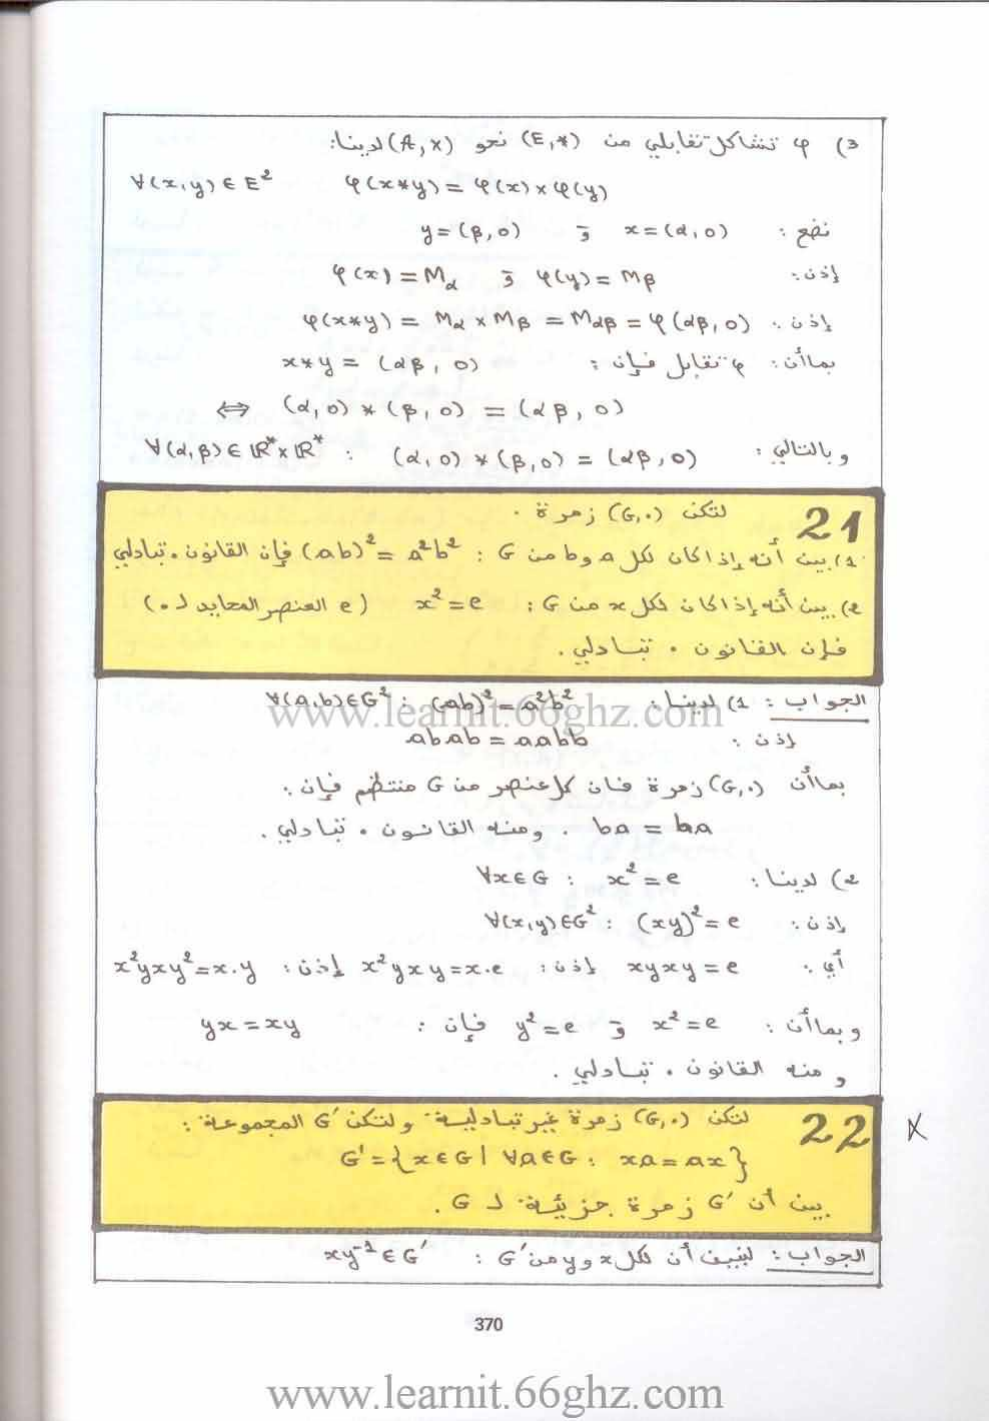 3) φ تشاكل تقابلي من (E,*) نحو (A,×) لدينا:
∀(x,y) ∈ E² φ(x*y) = φ(x)×φ(y)
نضع : x=(α,0) و y=(β,0)
إذن: φ(x) = Mα و φ(y) = Mβ
إذن: φ(x*y) = Mα × Mβ = Mαβ = φ(αβ,0)
بما أن: φ تقابل فإن : x*y = (αβ,0)
⇔ (α,0) * (β,0) = (αβ,0)
وبالتالي : ∀(α,β) ∈ ℝ*×ℝ* : (α,0) * (β,0) = (αβ,0)
21 لتكن (G,.) زمرة .
1) بين أنه إذا كان لكل a و b من G : (ab)² = a²b² فإن القانون . تبادلي
2) بين أنه إذا كان لكل x من G : x² = e (e العنصر المحايد ل .)
فإن القانون . تبادلي .
الجواب : 1) لدينا : ∀(a,b)∈G² : (ab)² = a²b²
www.learnit.66ghz.com
إذن : abab = aabb
بما أن (G,.) زمرة فان كل عنصر من G منتظم فإن :
ba = ba . ومنه القانون . تبادلي .
2) لدينا : ∀x∈G : x² = e
إذن : ∀(x,y)∈G² : (xy)² = e
أي : xyxy = e إذن : x²yxy = x.e إذن : x²yxy² = x.y
وبما أن : x² = e و y² = e فإن : yx = xy
ومنه القانون . تبادلي .
22 لتكن (G,.) زمرة غير تبادلية ولتكن G' المجموعة :
X
G' = {x∈G | ∀a∈G : xa = ax}
بين أن G' زمرة جزئية ل G .
الجواب : لنبين أن لكل x و y من G' : xy⁻¹ ∈ G'
370
www.learnit.66ghz.com